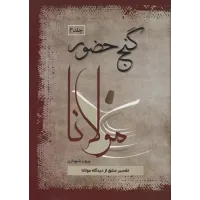 جلد ۲
گنج حضور
مولانا
پرویز شهبازی
تفسیر عشق از دیدگاه مولانا